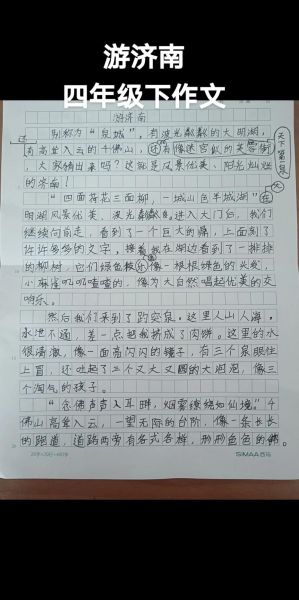 游济南
四年级下作文
游济南
别称为“泉城”，有波光粼粼的大明湖，
有高耸入云的千佛山，还有像迷宫似的芙蓉街，
天下第一泉
大家猜出来吗？这就是风景优美、阳光灿烂
的济南！
“四面荷花三面柳，一城山色半城湖”在
大
明湖风景优美，波光粼粼。进入大门后，我们
继续向前走，看到了一个巨大的扇，上面刻了
许许多多的文字。接着我在湖边看到了一排排
的柳树，它们绿色的像一根根绿色的头发，
小麻雀叽叽喳喳的，像为大自然唱起优美的交
响乐。
然后我们来到了趵突泉。这里人山人海，
水泄不通，差一点把我挤成了肉饼。这里的水
很清澈，像一面亮闪闪的镜子，有三个泉眼往
上冒，还吐起了三个又大又圆的大泡泡，像三
个淘气的孩子。
“念佛声声入耳畔，烟雾缭绕如仙境。”千
佛山高耸入云，一望无际的台阶，像一条长长
的跑道，道路两旁有各式各样，形形色色的佛。
20字×20行=400字
SIMAA西玛